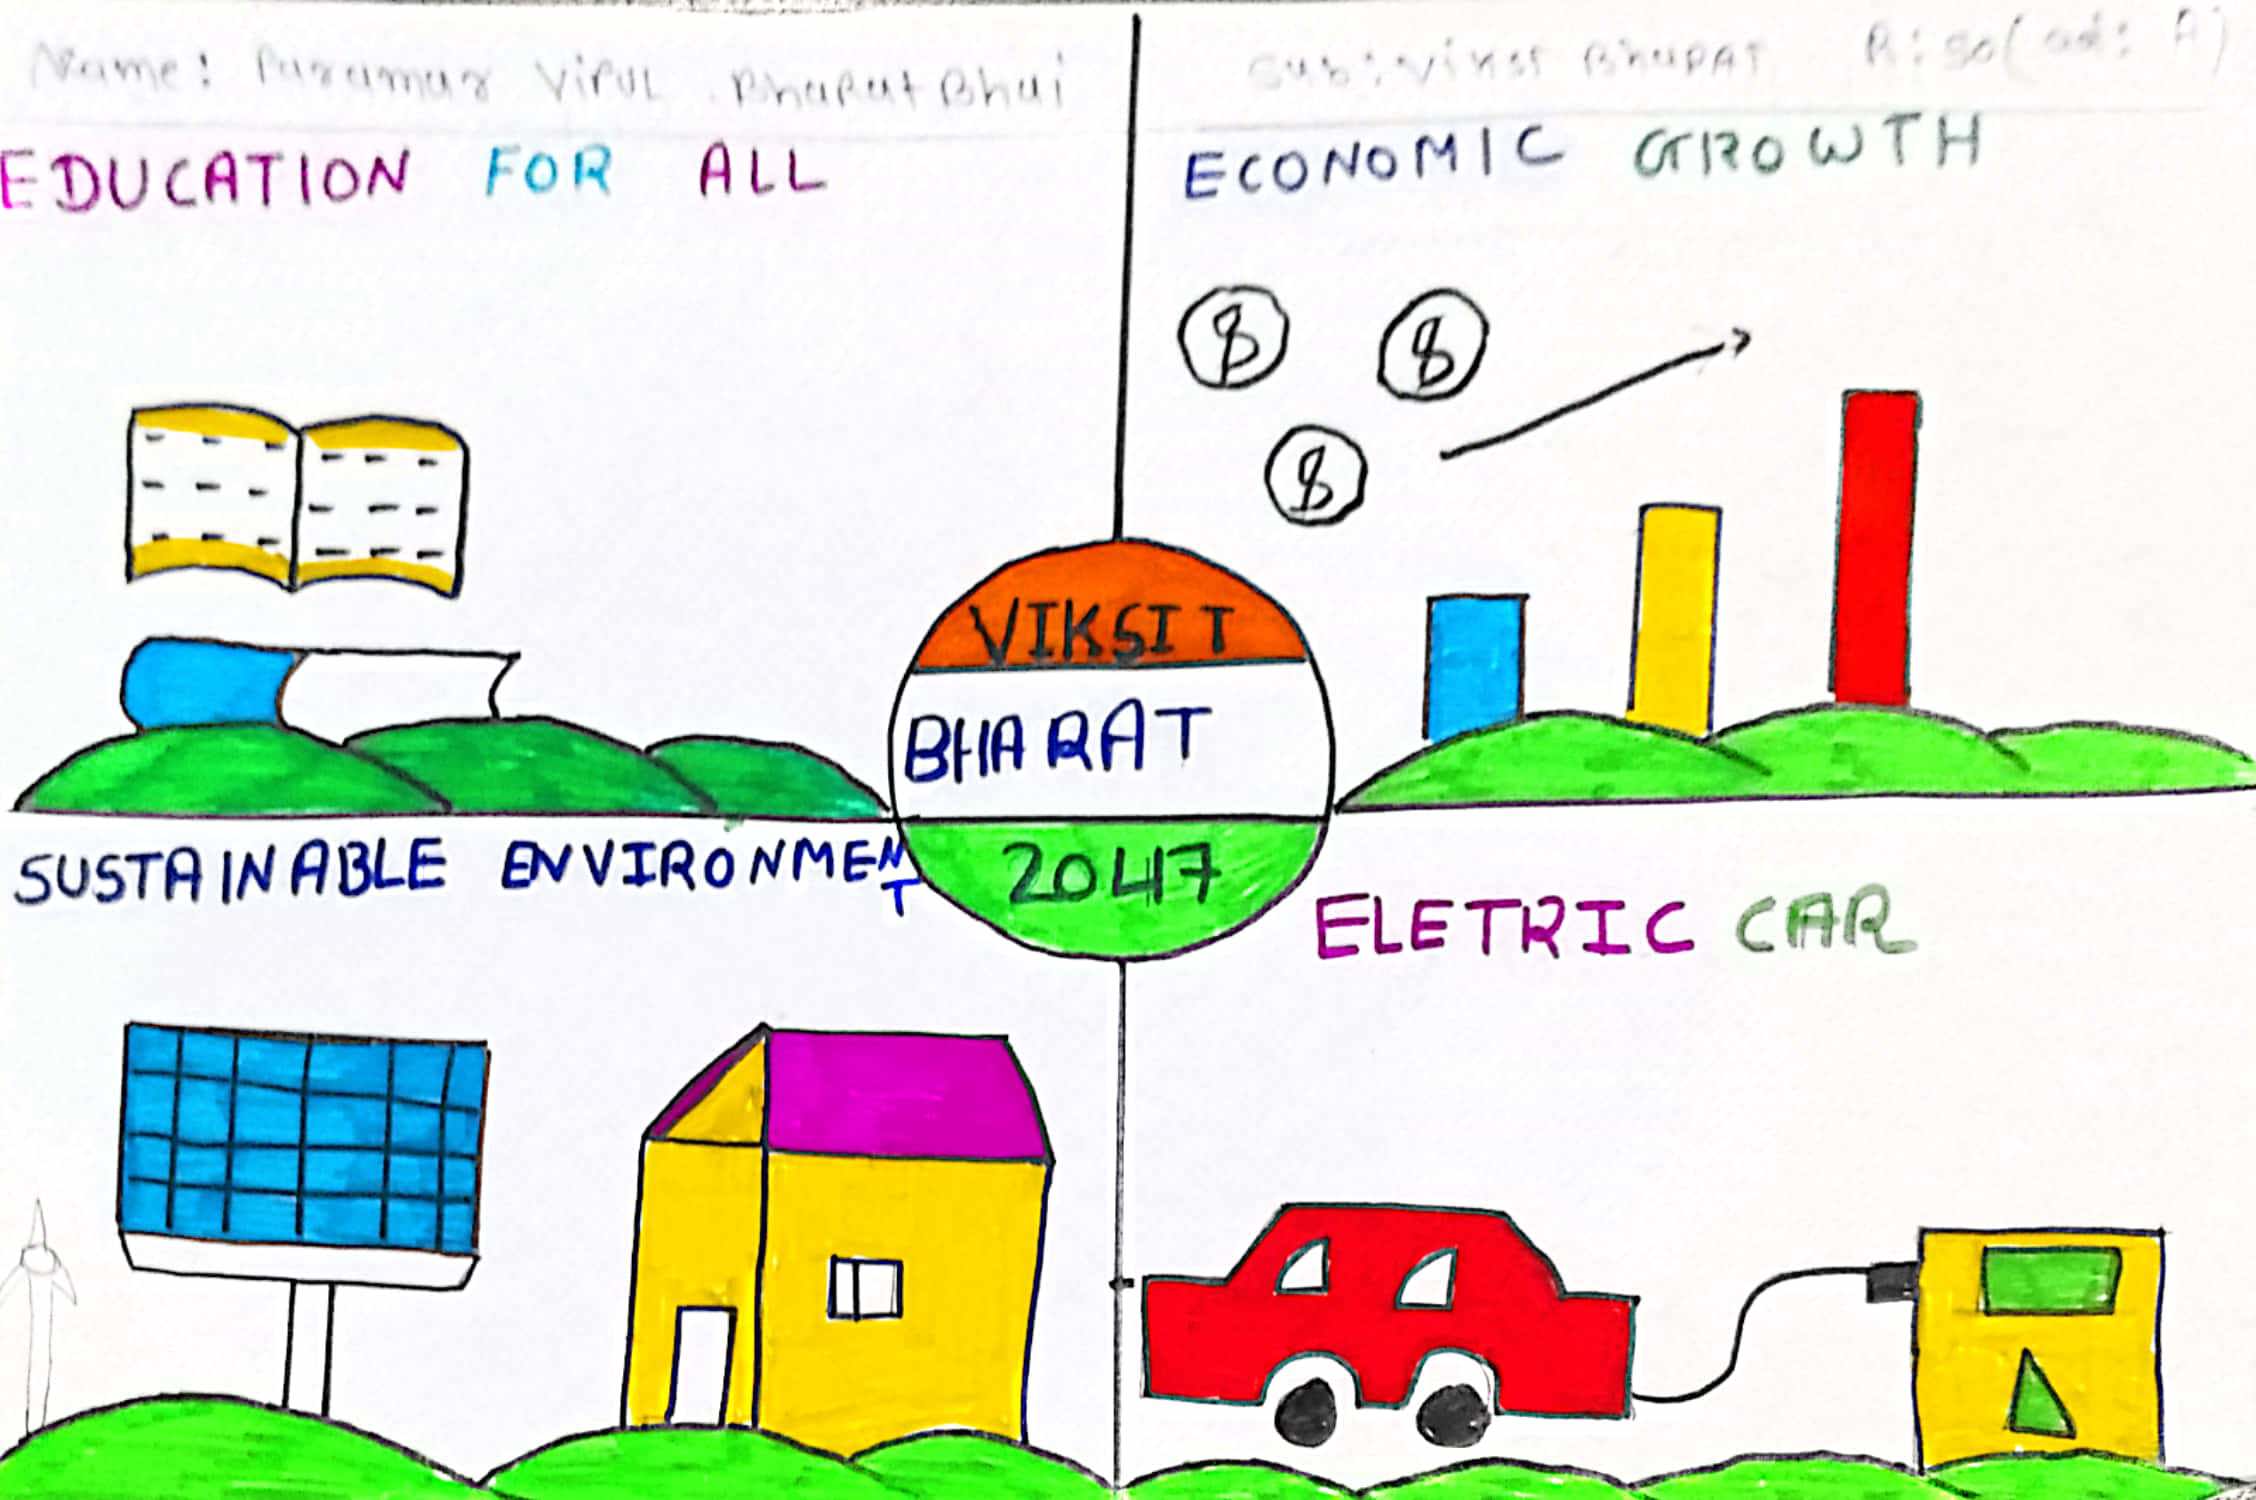 Name: Paramar Vipul . Bharat Bhai
Sub: Viksit Bharat R: 50 (
EDUCATION FOR ALL
ECONOMIC GROWTH
$ $
$
VIKSIT
BHARAT
2047
SUSTAINABLE ENVIRONMENT
ELETRIC CAR